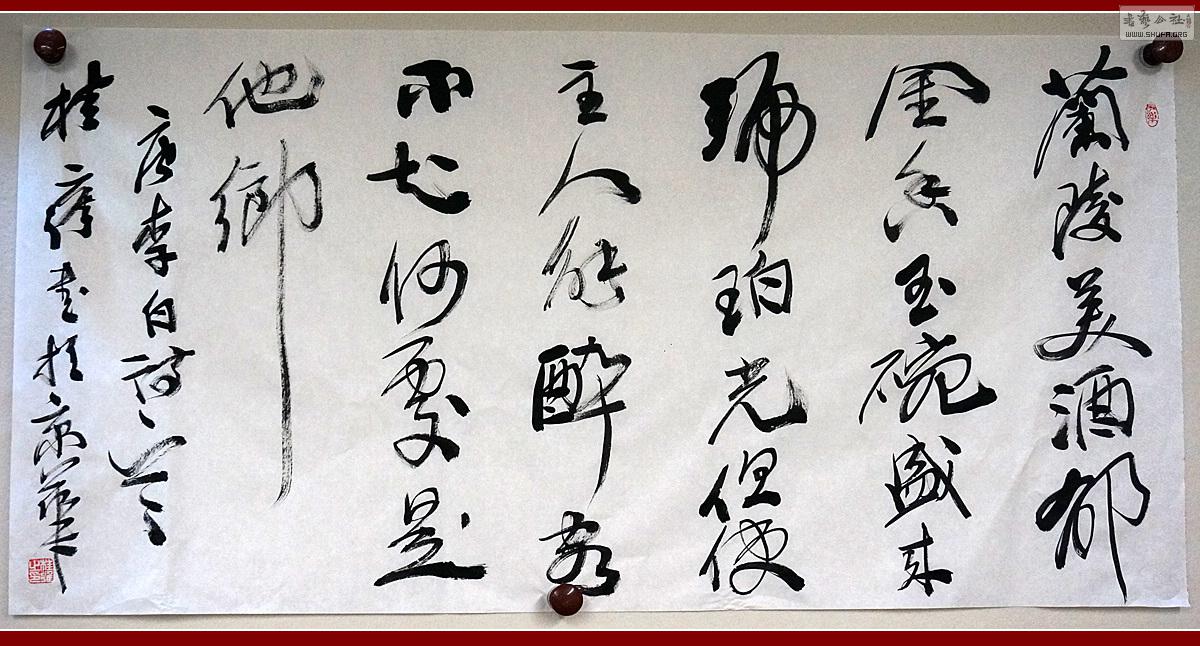 蘭陵美酒郁
金香玉碗盛来
琥珀光但使
主人能醉客
不知何處是
他鄉
唐李白詩一首
桂書於京華
书艺公社
WWW.SHUFA.ORG